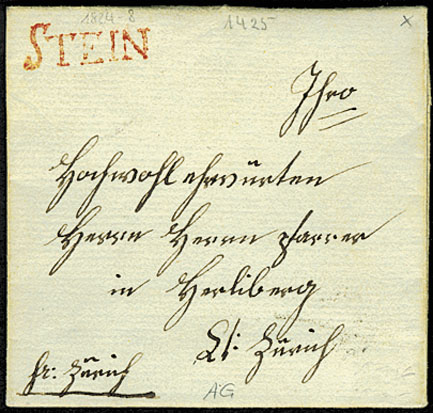 1824-8
1425
x
STEIN
Ihro
Hochwohl ehrwürten
Herrn Herrn pfarrer
in Herliberg
Ct: Zürich
fr: Zürich
AG